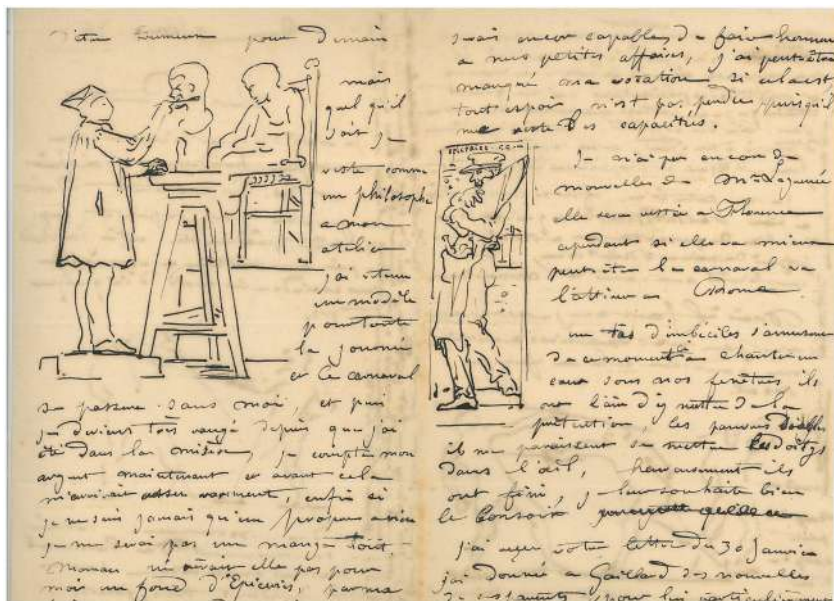 pour demain
mais
quel qu'il
soit je
reste comme
un philosophe
a mon
atelier
j'ai retenu
un modèle
pour toute
la journée
et le carnaval
se passera sans moi, et puis
je deviens très rangé depuis que j'ai
été dans la misère, je compte mon
argent maintenant et avant cela
m'arrivait assez rarement, enfin si
je ne suis jamais qu'un propre a rien
je ne serai pas un mange tout
maman ne aurait elle pas pour
moi un fond d'Epicerie, parma
serais encore capable de faire honneur
a nos petites affaires, j'ai peut être
manqué ma vocation si cela est,
tout espoir n'est pas perdu puisqu'il
me reste des capacités.
EPICERIES
Je n'ai pas encore de
nouvelles de Mme
elle sera restée a Florence
cependant si elle va mieux
peut être le carnaval va
l'attirer a Rome.
un tas d'imbéciles s'amusent
de ce moment a chanter un
sous nos fenêtres ils
ont l'air d'y mettre de la
prétention, les pauvres diables
il me paraissent se mettre les doigts
dans l'œil, heureusement ils
ont fini, je leur souhaite bien
le bonsoir
j'ai reçu votre lettre du 30 Janvier
j'ai donné a Gaillard des nouvelles
de ses parents, pour lui particulièrement